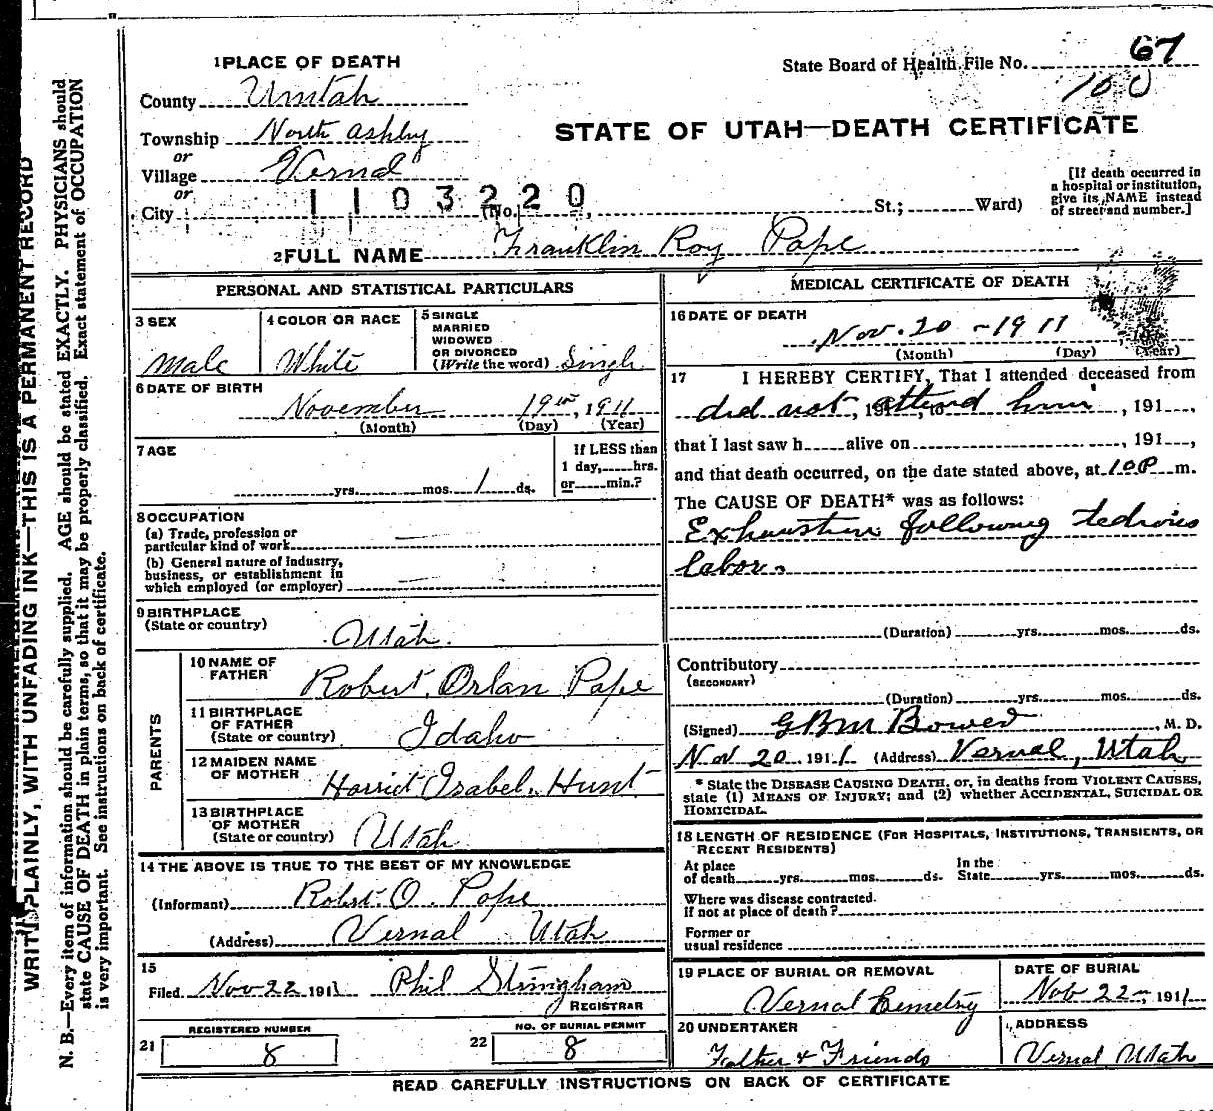 WRITE PLAINLY, WITH UNFADING INK—THIS IS A PERMANENT RECORD
N. B.—Every item of information should be carefully supplied. AGE should be stated EXACTLY. PHYSICIANS should
state CAUSE OF DEATH in plain terms, so that it may be properly classified. Exact statement of OCCUPATION
is very important. See instructions on back of certificate.
1 PLACE OF DEATH
State Board of Health File No. 67
100
County Uintah
Township North Ashby
or
Village Vernal
or
STATE OF UTAH—DEATH CERTIFICATE
[If death occurred in
a hospital or institution,
give its NAME instead
of street and number.]
City 1103220 (No. St.; Ward)
2 FULL NAME Franklin Roy Pape
PERSONAL AND STATISTICAL PARTICULARS
3 SEX
Male
4 COLOR OR RACE
White
5 SINGLE
MARRIED
WIDOWED
OR DIVORCED
(Write the word) Single
6 DATE OF BIRTH
November 19th, 1911
(Month) (Day) (Year)
7 AGE
yrs. mos. 1 ds.
If LESS than
1 day, hrs.
or min.?
8 OCCUPATION
(a) Trade, profession or
particular kind of work
(b) General nature of industry,
business, or establishment in
which employed (or employer)
9 BIRTHPLACE
(State or country)
Utah.
PARENTS
10 NAME OF
FATHER
Robert Orlan Pape
11 BIRTHPLACE
OF FATHER
(State or country)
Idaho
12 MAIDEN NAME
OF MOTHER
Harriet Isabel Hunt
13 BIRTHPLACE
OF MOTHER
(State or country)
Utah
14 THE ABOVE IS TRUE TO THE BEST OF MY KNOWLEDGE
(Informant) Robt. O. Pape
(Address) Vernal Utah
15
Filed Nov 22 1911 Phil Stringham
REGISTRAR
REGISTERED NUMBER
21 8
NO. OF BURIAL PERMIT
22 8
MEDICAL CERTIFICATE OF DEATH
16 DATE OF DEATH
Nov. 20 - 1911
(Month) (Day) (Year)
17 I HEREBY CERTIFY, That I attended deceased from
did not, 191, to attend him, 191,
that I last saw h alive on , 191,
and that death occurred, on the date stated above, at 10 P m.
The CAUSE OF DEATH* was as follows:
Exhaustion following tedious
labor.
(Duration) yrs. mos. ds.
Contributory
(SECONDARY)
(Duration) yrs. mos. ds.
(Signed) G B M Bower, M. D.
Nov 20 1911 (Address) Vernal, Utah
* State the DISEASE CAUSING DEATH, or, in deaths from VIOLENT CAUSES,
state (1) MEANS OF INJURY; and (2) whether ACCIDENTAL, SUICIDAL OR
HOMICIDAL.
18 LENGTH OF RESIDENCE (FOR HOSPITALS, INSTITUTIONS, TRANSIENTS, OR
RECENT RESIDENTS)
At place
of death yrs. mos. ds.
In the
State yrs. mos. ds.
Where was disease contracted.
If not at place of death?
Former or
usual residence
19 PLACE OF BURIAL OR REMOVAL
Vernal Cemetry
DATE OF BURIAL
Nov 22, 1911
20 UNDERTAKER
Father & Friends
ADDRESS
Vernal Utah
READ CAREFULLY INSTRUCTIONS ON BACK OF CERTIFICATE